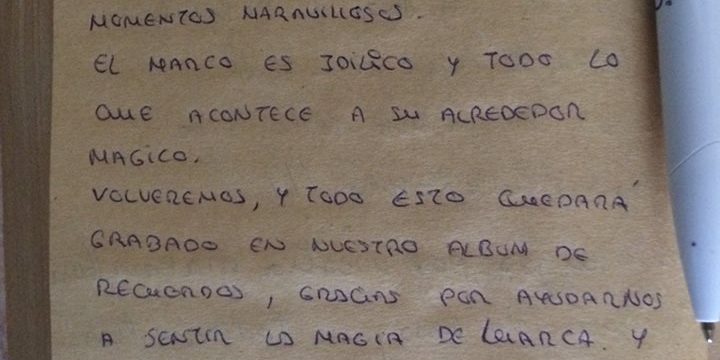 MOMENTOS MARAVILLOSOS.
EL MARCO ES IDILICO Y TODO LO
QUE ACONTECE A SU ALREDEDOR
MAGICO.
VOLVEREMOS, Y TODO ESTO QUEDARÁ
GRABADO EN NUESTRO ALBUM DE
RECUERDOS, GRACIAS POR AYUDARNOS
A SENTIR LA MAGIA DE LUARCA. Y